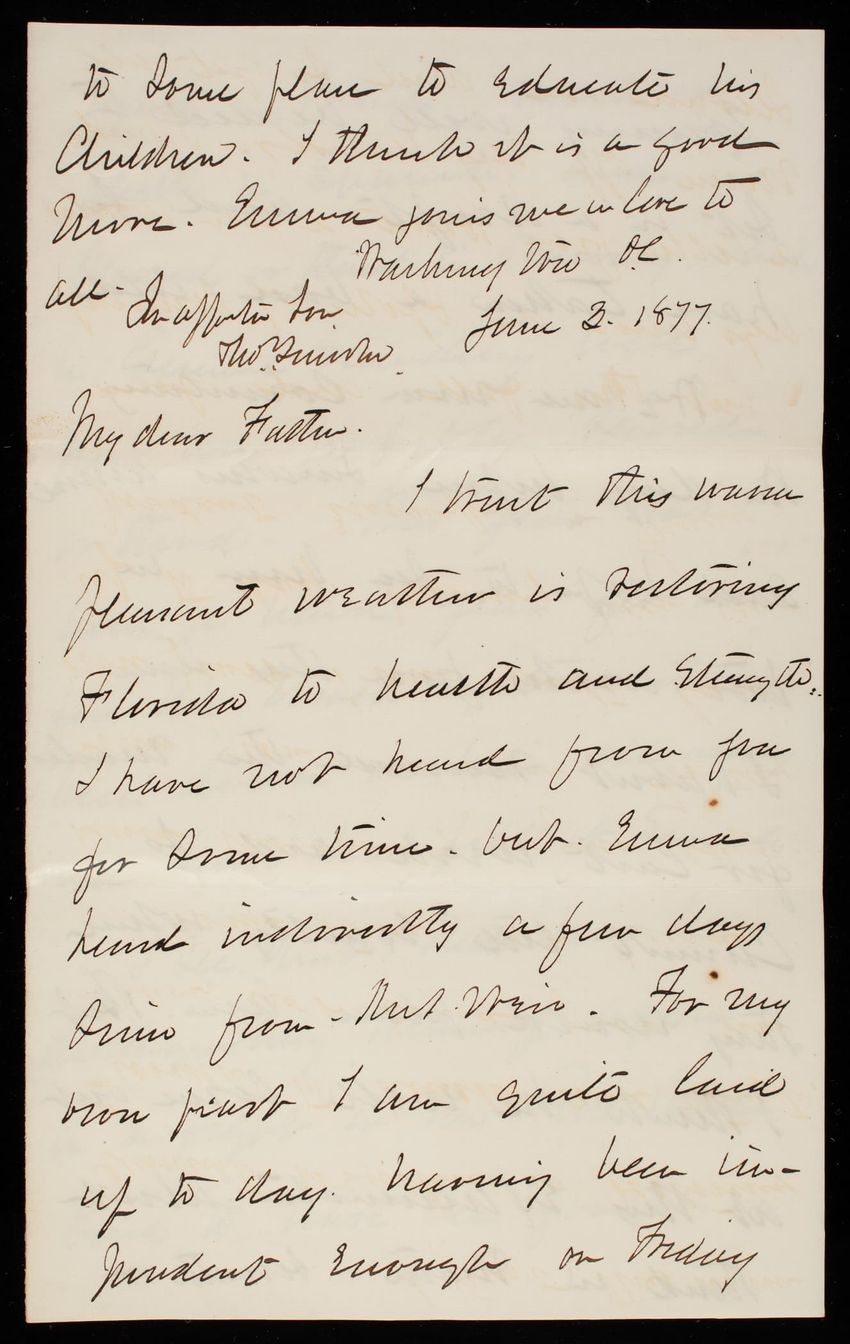 to some place to educate his
Children. I think it is a good
move. Emma joins me in love to
all-
Yr affecte Son
Thos. Lincoln
Washington DC.
June 3. 1877.
My dear Father.
I trust this warm
pleasant weather is restoring
Florida to health and strength.
I have not heard from you
for some time. but. Emma
heard indirectly a few days
since from - Weir. For my
own part I am quite laid
up to day. having been im-
prudent enough on Friday